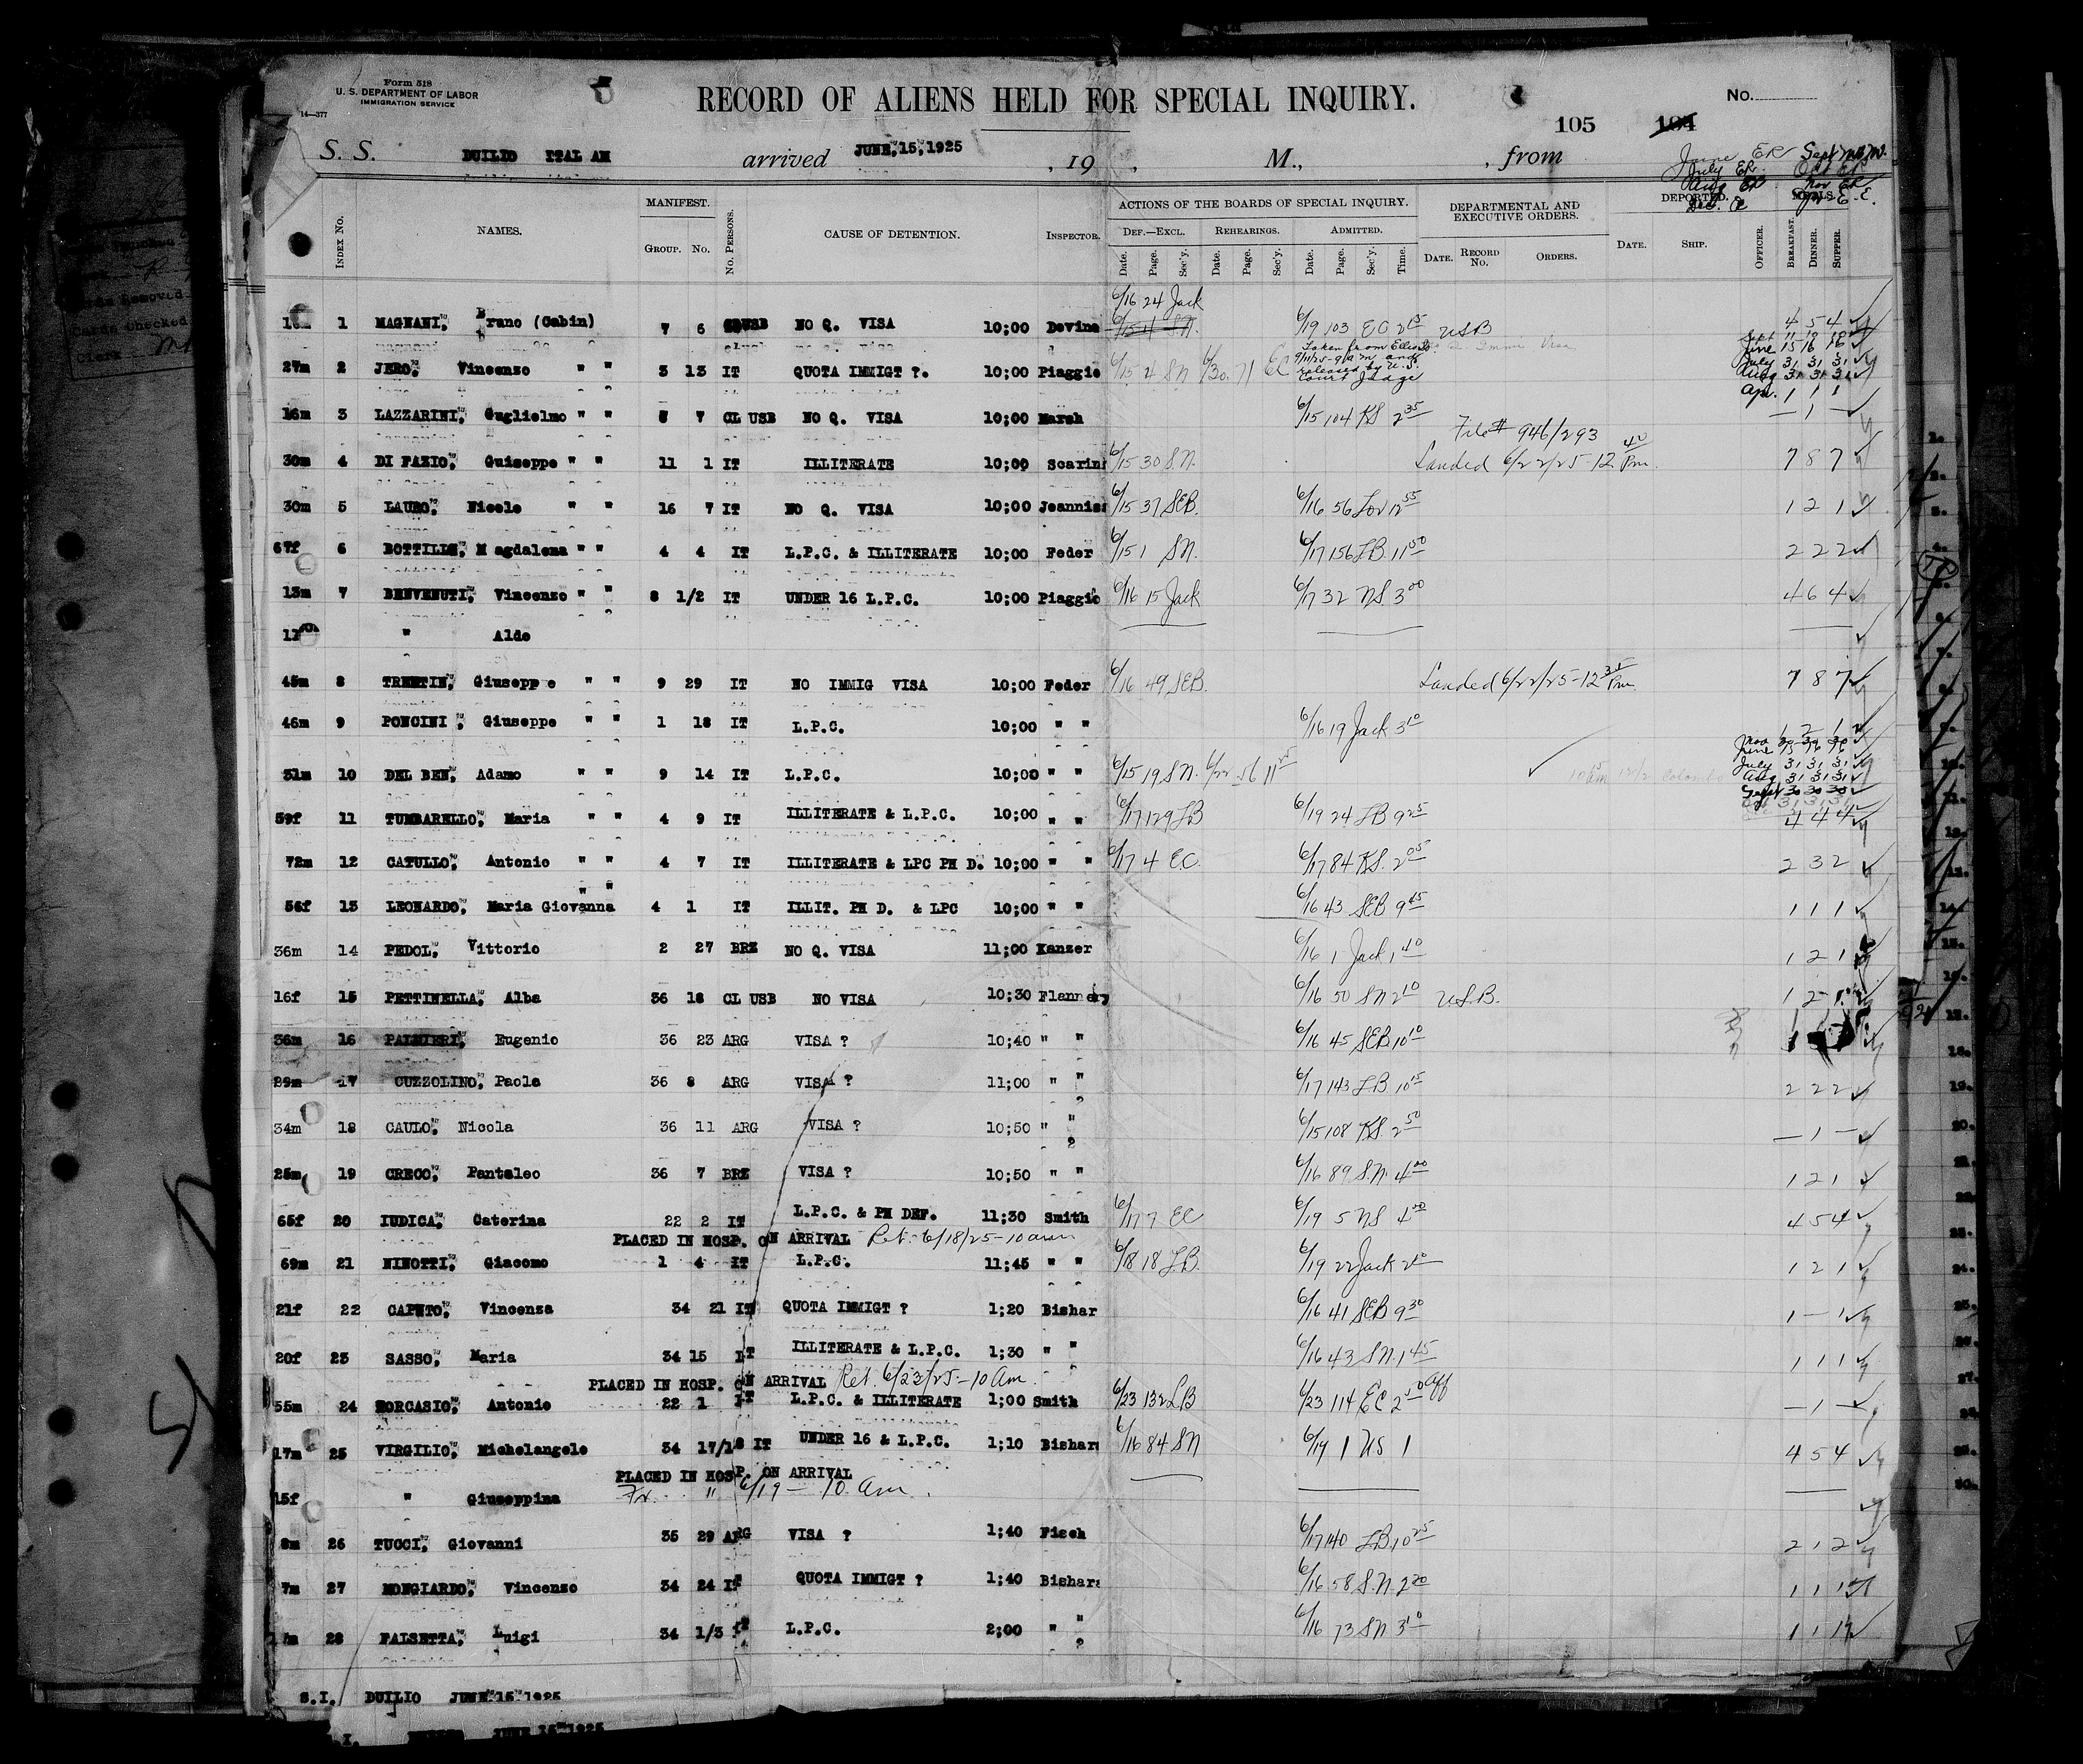 Form 518
U. S. DEPARTMENT OF LABOR
IMMIGRATION SERVICE
14—377
RECORD OF ALIENS HELD FOR SPECIAL INQUIRY.
No.
105 104
S. S. DUILIO ITAL AM arrived JUNE,15,1925, 19 , M., , from
June ER Sept
July ER Oct ER
Aug ER Nov ER
Dec.
INDEX No. NAMES. MANIFEST. GROUP. No. No. PERSONS. CAUSE OF DETENTION. INSPECTOR. ACTIONS OF THE BOARDS OF SPECIAL INQUIRY. DEF.—EXCL. Date. Page. Sec'y. REHEARINGS. Date. Page. Sec'y. ADMITTED. Date. Page. Sec'y. Time. DEPARTMENTAL AND EXECUTIVE ORDERS. DATE. RECORD No. ORDERS. DEPORTED. DATE. SHIP. OFFICER. MEALS. BREAKFAST. DINNER. SUPPER.
6/16 24 Jack
1 MAGNANI, Brano (Cabin) 7 6 USB NO Q. VISA 10;00 Devine 6/15 4 SN. 6/19 103 EC 2 15 USB 4 5 4
Taken from Ellis Is.
9/11/25-9 a m and
released by U.S.
Court Judge
Sept 11 18 18
June 15 16 16
July 31 31 31
Aug 31 31 31
27m 2 JERO, Vincenzo " " 3 13 IT QUOTA IMMIGT ?. 10;00 Piaggio 6/15 4 SN 6/30 71 EC
1 1 1
16m 3 LAZZARINI, Guglielmo " " 8 7 CL USB NO Q. VISA 10;00 Marsh 6/15 104 KS 2 35 — 1 —
File # 946/293
30m 4 DI FAZIO, Guiseppe " " 11 1 IT ILLITERATE 10;00 Scarin 6/15 30 S.N. Landed 6/22/25-12 40 Pm. 7 8 7
30m 5 LAURO, Nicolo " " 16 7 IT NO Q. VISA 10;00 Jeannis 6/15 37 SEB. 6/16 56 Lov 12 55 1 2 1
67f 6 BOTTILIN, Magdalena " " 4 4 IT L.P.C. & ILLITERATE 10;00 Feder 6/15 1 SN. 6/17 156 LB 11 50 2 2 2
13m 7 BENVENUTI, Vincenzo " " 8 1/2 IT UNDER 16 L.P.C. 10;00 Piaggio 6/16 15 Jack 6/17 32 NS 3 00 4 6 4
" Aldo
45m 8 TRENTIN, Giuseppe " " 9 29 IT NO IMMIG VISA 10;00 Feder 6/16 49 SEB. Landed 6/22/25-12 35 Pm. 7 8 7
46m 9 PONCINI, Giuseppe " " 1 18 IT L.P.C. 10;00 " " 6/16 19 Jack 3 10 1 2 1
Nov 30 30 30
June 15 16 16
July 31 31 31
Aug 31 31 31
Sept 30 30 30
31m 10 DEL BEN, Adamo " " 9 14 IT L.P.C. 10;00 " " 6/15 19 SN. 6/22 56 11 25 10 15 am 12/2 Colombo
59f 11 TUMBARELLO, Maria " " 4 9 IT ILLITERATE & L.P.C. 10;00 " " 6/17 129 LB 6/19 24 LB 9 25 4 4 4
72m 12 CATULLO, Antonio " " 4 7 IT ILLITERATE & LPC PH D. 10;00 " " 6/17 4 EC. 6/17 84 KS. 2 05 2 3 2
56f 13 LEONARDO, Maria Giovanna " " 4 1 IT ILLIT. PH D. & LPC 10;00 " " 6/16 43 SEB 9 45 1 1 1
36m 14 PEDOL, Vittorio 2 27 BRZ NO Q. VISA 11;00 Kanzer 6/16 1 Jack 1 40 1 2 1
16f 15 PETTINELLA, Alba 36 18 CL USB NO VISA 10;30 Flannery 6/16 50 SN 2 10 U.S.B. 1 2
36m 16 PALMIERI, Eugenio 36 23 ARG VISA ? 10;40 " " 6/16 45 SEB 10 10 1
29m 17 CUZZOLINO, Paolo 36 8 ARG VISA ? 11;00 " " 6/17 143 LB 10 15 2 2 2
34m 18 CAULO, Nicola 36 11 ARG VISA ? 10;50 " " 6/15 108 KS. 2 50 — 1 —
25m 19 CRECO, Pantaleo 36 7 BRZ VISA ? 10;50 " " 6/16 89 S.N. 4 00 1 2 1
65f 20 IUDICA, Caterina 22 2 IT L.P.C. & PH DEF. 11;30 Smith 6/17 7 EC 6/19 5 NS 4 20 4 5 4
PLACED IN HOSP. ON ARRIVAL Ret. 6/18/25-10 am
69m 21 NINOTTI, Giacomo 1 4 IT L.P.C. 11;45 " " 6/18 18 LB. 6/19 22 Jack 2 10 1 2 1
21f 22 CAPUTO, Vincenza 34 21 IT QUOTA IMMIGT ? 1;20 Bishar 6/16 41 SEB 9 30 1 — 1
20f 23 SASSO, Maria 34 15 IT ILLITERATE & L.P.C. 1;30 " " 6/16 43 SN. 1 45 1 1 1
PLACED IN HOSP. ON ARRIVAL Ret. 6/23/25-10 am.
55m 24 TORCASIO, Antonio 22 1 IT L.P.C. & ILLITERATE 1;00 Smith 6/23 132 LB 6/23 114 EC 2 50 Aff — 1 —
17m 25 VIRGILIO, Michelangelo 34 17/18 IT UNDER 16 & L.P.C. 1;10 Bishar 6/16 84 SN 6/19 1 NS 1 4 5 4
PLACED IN HOSP. ON ARRIVAL
15f " Giuseppina Fr. " 6/19 — 10 am.
8m 26 TUCCI, Giovanni 35 29 ARG VISA ? 1;40 Fisch 6/17 140 LB 10 25 2 1 2
7m 27 MONGIARDO, Vincenzo 34 24 IT QUOTA IMMIGT ? 1;40 Bishar 6/16 58 S.N. 2 20 1 1 1
28 FALSETTA, Luigi 34 1/3 L.P.C. 2;00 " " 6/16 73 SN 3 10 1 1 1
S.I. DUILIO JUNE 15, 1925
JUNE 15 1925